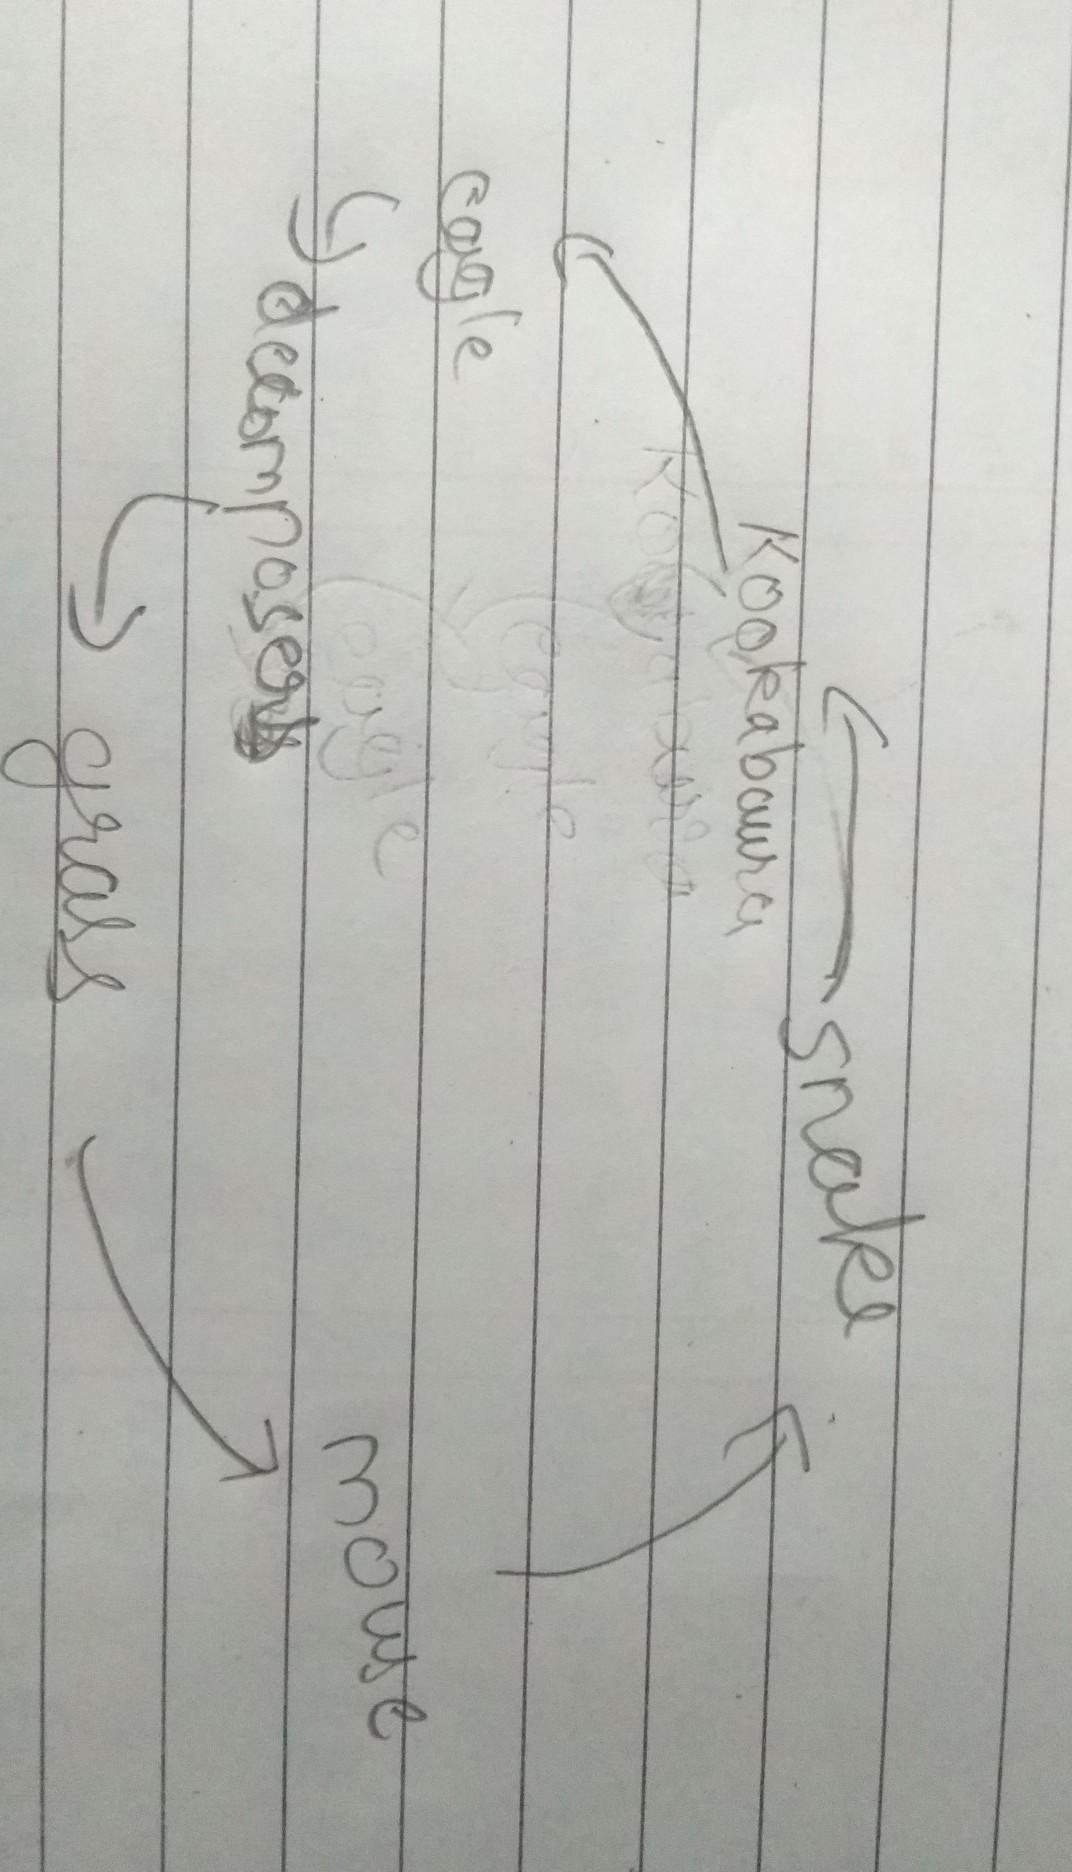 snake
Kookabaura
eagle
decomposers
grass
mouse